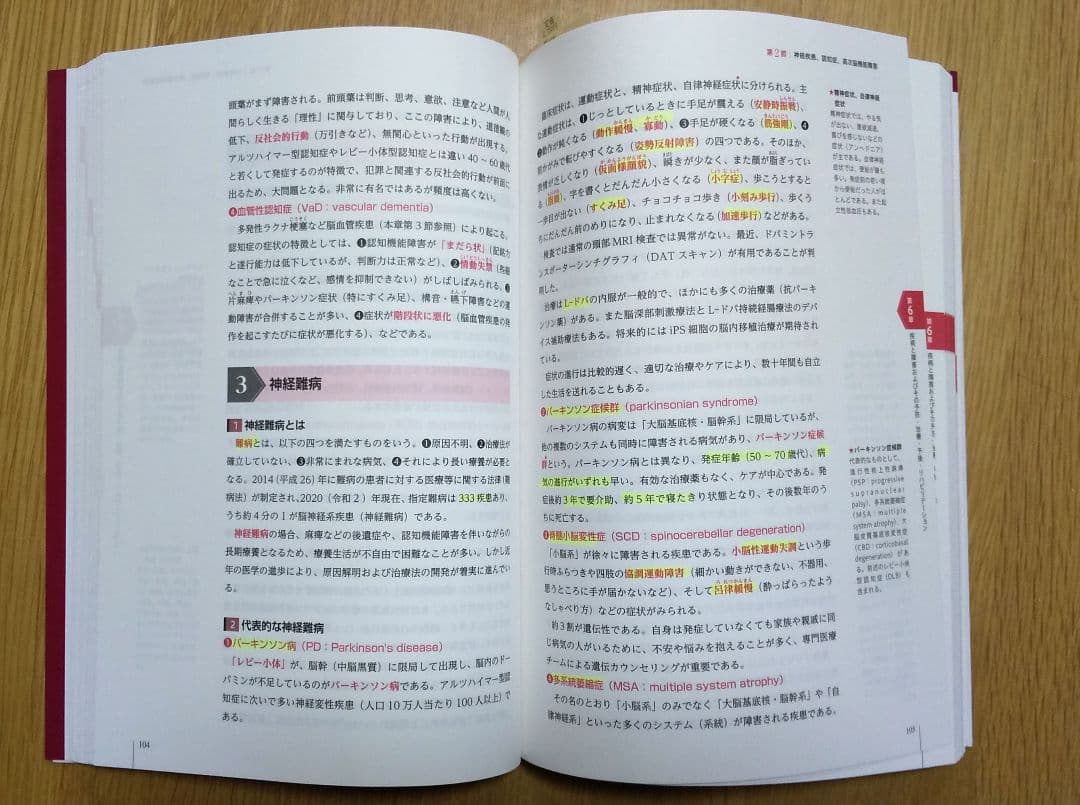 頭葉がまず障害される。前頭葉は判断、思考、意欲、注意など人間が人
間らしく生きる「理性」に関与しており、ここの障害により、道徳観の
低下、反社会的行動（万引きなど）、無関心といった行動が出現する。
アルツハイマー型認知症やレビー小体型認知症とは違い40～60歳代
と若くして発症するのが特徴で、犯罪と関連する反社会的行動が前面に
出るため、大問題となる。非常に有名ではあるが頻度は高くない。
❹血管性認知症（VaD：vascular dementia）
多発性ラクナ梗塞など脳血管疾患（本章第3節参照）により起こる。
認知症の症状の特徴としては、❶認知機能障害が「まだら状」（記銘力
と遂行能力は低下しているが、判断力は正常など）、❷情動失禁（些細
なことで急に泣くなど、感情を抑制できない）がしばしばみられる、❸
片麻痺やパーキンソン症状（特にすくみ足）、構音・嚥下障害などの運
動障害が合併することが多い、❹症状が階段状に悪化（脳血管疾患の発
作を起こすたびに症状が悪化する）、などである。
3 神経難病
1 神経難病とは
難病とは、以下の四つを満たすものをいう。❶原因不明、❷治療法が
確立していない、❸非常にまれな病気、❹それにより長い療養が必要と
なる。2014（平成26）年に難病の患者に対する医療等に関する法律（難
病法）が制定され、2020（令和2）年現在、指定難病は333疾患あり、
うち約4分の1が脳神経系疾患（神経難病）である。
神経難病の場合、麻痺などの後遺症や、認知機能障害を伴いながらの
長期療養となるため、療養生活が不自由で困難なことが多い。しかし近
年の医学の進歩により、原因解明および治療法の開発が着実に進んでい
る。
2 代表的な神経難病
❶パーキンソン病（PD：Parkinson's disease）
「レビー小体」が、脳幹（中脳黒質）に限局して出現し、脳内のドー
パミンが不足しているのがパーキンソン病である。アルツハイマー型認
知症に次いで多い神経変性疾患（人口10万人当たり100人以上）で
ある。
104
第2節 神経疾患、認知症、高次脳機能障害
臨床症状は、運動症状と、精神症状、自律神経症状に分けられる。主
な運動症状は、❶じっとしているときに手足が震える（安静時振戦）、
❷動作が鈍くなる（動作緩慢、寡動）、❸手足が硬くなる（筋強剛）、❹
前かがみで転びやすくなる（姿勢反射障害）の四つである。そのほか、
表情が乏しくなり（仮面様顔貌）、瞬きが少なく、また顔が脂ぎってい
る（脂顔）、字を書くとだんだん小さくなる（小字症）、歩こうとすると
一歩目が出ない（すくみ足）、チョコチョコ歩き（小刻み歩行）、歩くう
ちにだんだん前のめりになり、止まれなくなる（加速歩行）などがある。
検査では通常の頭部MRI検査では異常がない。最近、ドパミントラ
ンスポーターシンチグラフィ（DATスキャン）が有用であることが判
明した。
治療はL-ドパの内服が一般的で、ほかにも多くの治療薬（抗パーキ
ンソン薬）がある。また脳深部刺激療法とL-ドパ持続経腸療法のデバ
イス補助療法もある。将来的にはiPS細胞の脳内移植治療が期待され
ている。
症状の進行は比較的遅く、適切な治療やケアにより、数十年間も自立
した生活を送れることもある。
❷パーキンソン症候群（parkinsonian syndrome）
パーキンソン病の病変は「大脳基底核・脳幹系」に限局しているが、
他の複数のシステムも同時に障害される病気があり、パーキンソン症候
群という。パーキンソン病とは異なり、発症年齢（50～70歳代）、病
気の進行がいずれも早い。有効な治療薬もなく、ケアが中心である。発
症後約3年で要介助、約5年で寝たきり状態となり、その後数年のう
ちに死亡する。
❸脊髄小脳変性症（SCD：spinocerebellar degeneration）
「小脳系」が徐々に障害される疾患である。小脳性運動失調という歩
行時ふらつきや四肢の協調運動障害（細かい動きができない、不器用、
思うところに手が届かないなど）、そして呂律緩慢（酔っぱらったよう
なしゃべり方）などの症状がみられる。
約3割が遺伝性である。自身は発症していなくても家族や親戚に同
じ病気の人がいるために、不安や悩みを抱えることが多く、専門医療
チームによる遺伝カウンセリングが重要である。
❹多系統萎縮症（MSA：multiple system atrophy）
その名のとおり「小脳系」のみでなく「大脳基底核・脳幹系」や「自
律神経系」といった多くのシステム（系統）が障害される疾患である。
★精神症状、自律神経
症状
精神症状では、やる気
が出ない、意欲減退、
喜びを感じないなどの
症状（アンヘドニア）
が主である。自律神経
症状では、便秘が最も
多い。発症前の若い頃
から便秘だった人がほ
とんどである。また起
立性低血圧もある。
★パーキンソン症候群
代表的なものとして、
進行性核上性麻痺
（PSP：progressive
supranuclear
palsy）、多系統萎縮症
（MSA：multiple
system atrophy）、大
脳皮質基底核変性症
（CBD：corticobasal
degeneration）があ
る。前述のレビー小体
型認知症（DLB）も
含まれる。
第6章
疾病と障害およびその予防・治療・予後・リハビリテーション
第6章
105